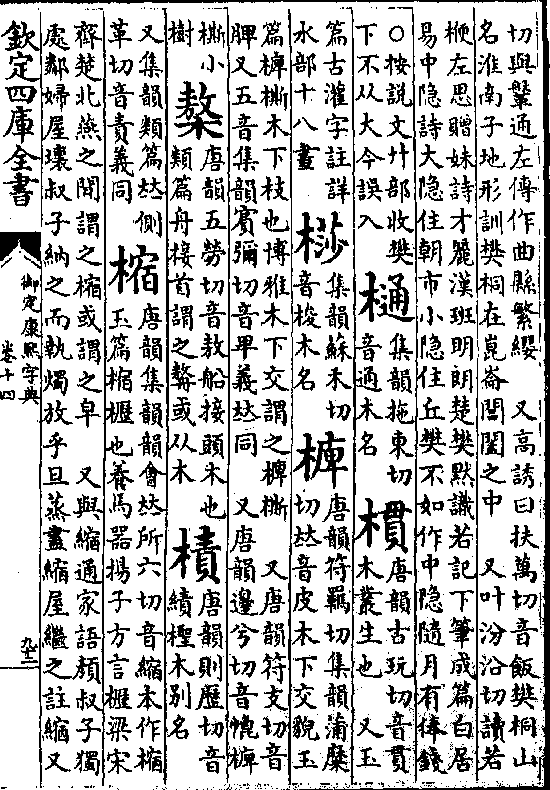 切與鞶通左傳作曲縣繁纓 又高誘曰扶萬切音飯樊桐山
名淮南子地形訓樊桐在崑崙閶闔之中 又叶汾沿切讀若
楩左思贈妹詩才麗漢班明朗楚樊默識若記下筆成篇白居
易中隱詩大隱住朝市小隱住丘樊不如作中隱隨月有俸錢
○按說文廾部收樊
下不从大今誤入
樋
集韻拖東切
音通木名
樌
唐韻古玩切音貫
木叢生也 又玉
篇古灌字註詳
水部十八畫
集韻蘇禾切
音梭木名
㯅
唐韻符羈切集韻蒲糜
切𠀤音皮木下交貌玉
篇㯅㯕木下枝也博雅木下交謂之㯅㯕 又唐韻符支切音
脾又五音集韻賓彌切音卑義𠀤同 又唐韻邊兮切音㡙㯅
㯕小
樹
唐韻五勞切音敖船接頭木也
類篇舟接首謂之 或从木
樍
唐韻則歷切音
績樫木別名
又集韻類篇𠀤側
革切音責義同
樎
唐韻集韻韻會𠀤所六切音縮本作樎
玉篇樎櫪也養馬器揚子方言櫪梁宋
齊楚北燕之間謂之樎或謂之皁 又與縮通家語顏叔子獨
處鄰婦屋壞叔子納之而執燭放乎旦蒸盡縮屋繼之註縮又
欽定四庫全書
御定康熙字典
卷十四
九十二